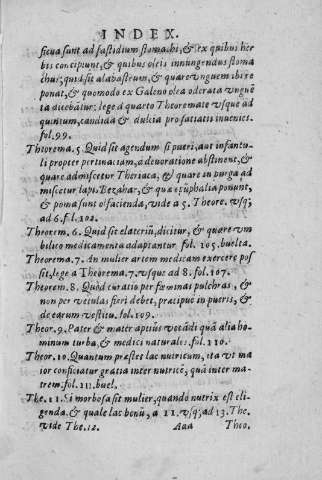 INDEX.
ficua sunt ad fastidium stomachi, & ex quibus her
bis concipiunt, & quibus oleis innungendus stoma
chus; quid sit alabastrum, & quare vnguem ibi re
ponat, & quomodo ex Galeno olea odorata vnguẽ
ta dicebãtur: lege à quarto Theoremate vsque ad
quintum, candida & dulcia pro satiatis inuenies.
fol. 99.
Thtorema. 5. Quid sit agendum si pueri, aut infantu-
li propter pertinaciam, à deuoratione abstinent, &
quare admiscetur Theriaca, & quare in purga ad
miscetur lapi. Bezahar, & quæ ẽsuphalia ponunt,
& poma sunt olfacienda, vide à 5. Theore. vsq;
ad 6. f l. 102.
Theorem. 6. Quid sit elateriũ, dicitur, & quare vm
bilico medicamenta adaptantur fol. 105. buelta.
Theorema. 7. An mulier artem medicam exercere pos
sit, lege à Theorema. 7. vsque ad 8. fol. 107.
Theorem. 8. Quòd curatio per fœminas pulchras, &
non per vetulas fieri debet, præcipuè in pueris, &
de earum vestitu. fol. 109.
Theor. 9. Pater & mater aptiùs vocãdi quã alia ho-
minum turba, & medics naturales. fol. 110.
Theor. 10. Quantum præstet lac nutricum, ita vt ma
ior conficiatur gratia inter nutricẽ, quã inter ma-
trem. fol. 111. buel.
The. 11. Si morbosa sit mulier, quando nutrix est eli-
genda, & quale lac bonũ, à 11. vsq; ad 13. The.
vide The. 12. Aaa Theo.